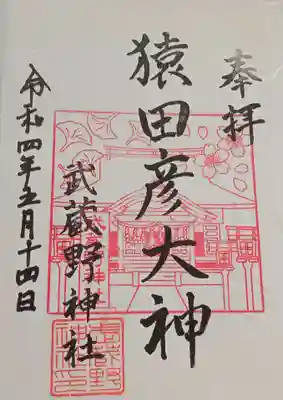 奉拝
猿田彦大神
武蔵野神社
令和四年五月十四日